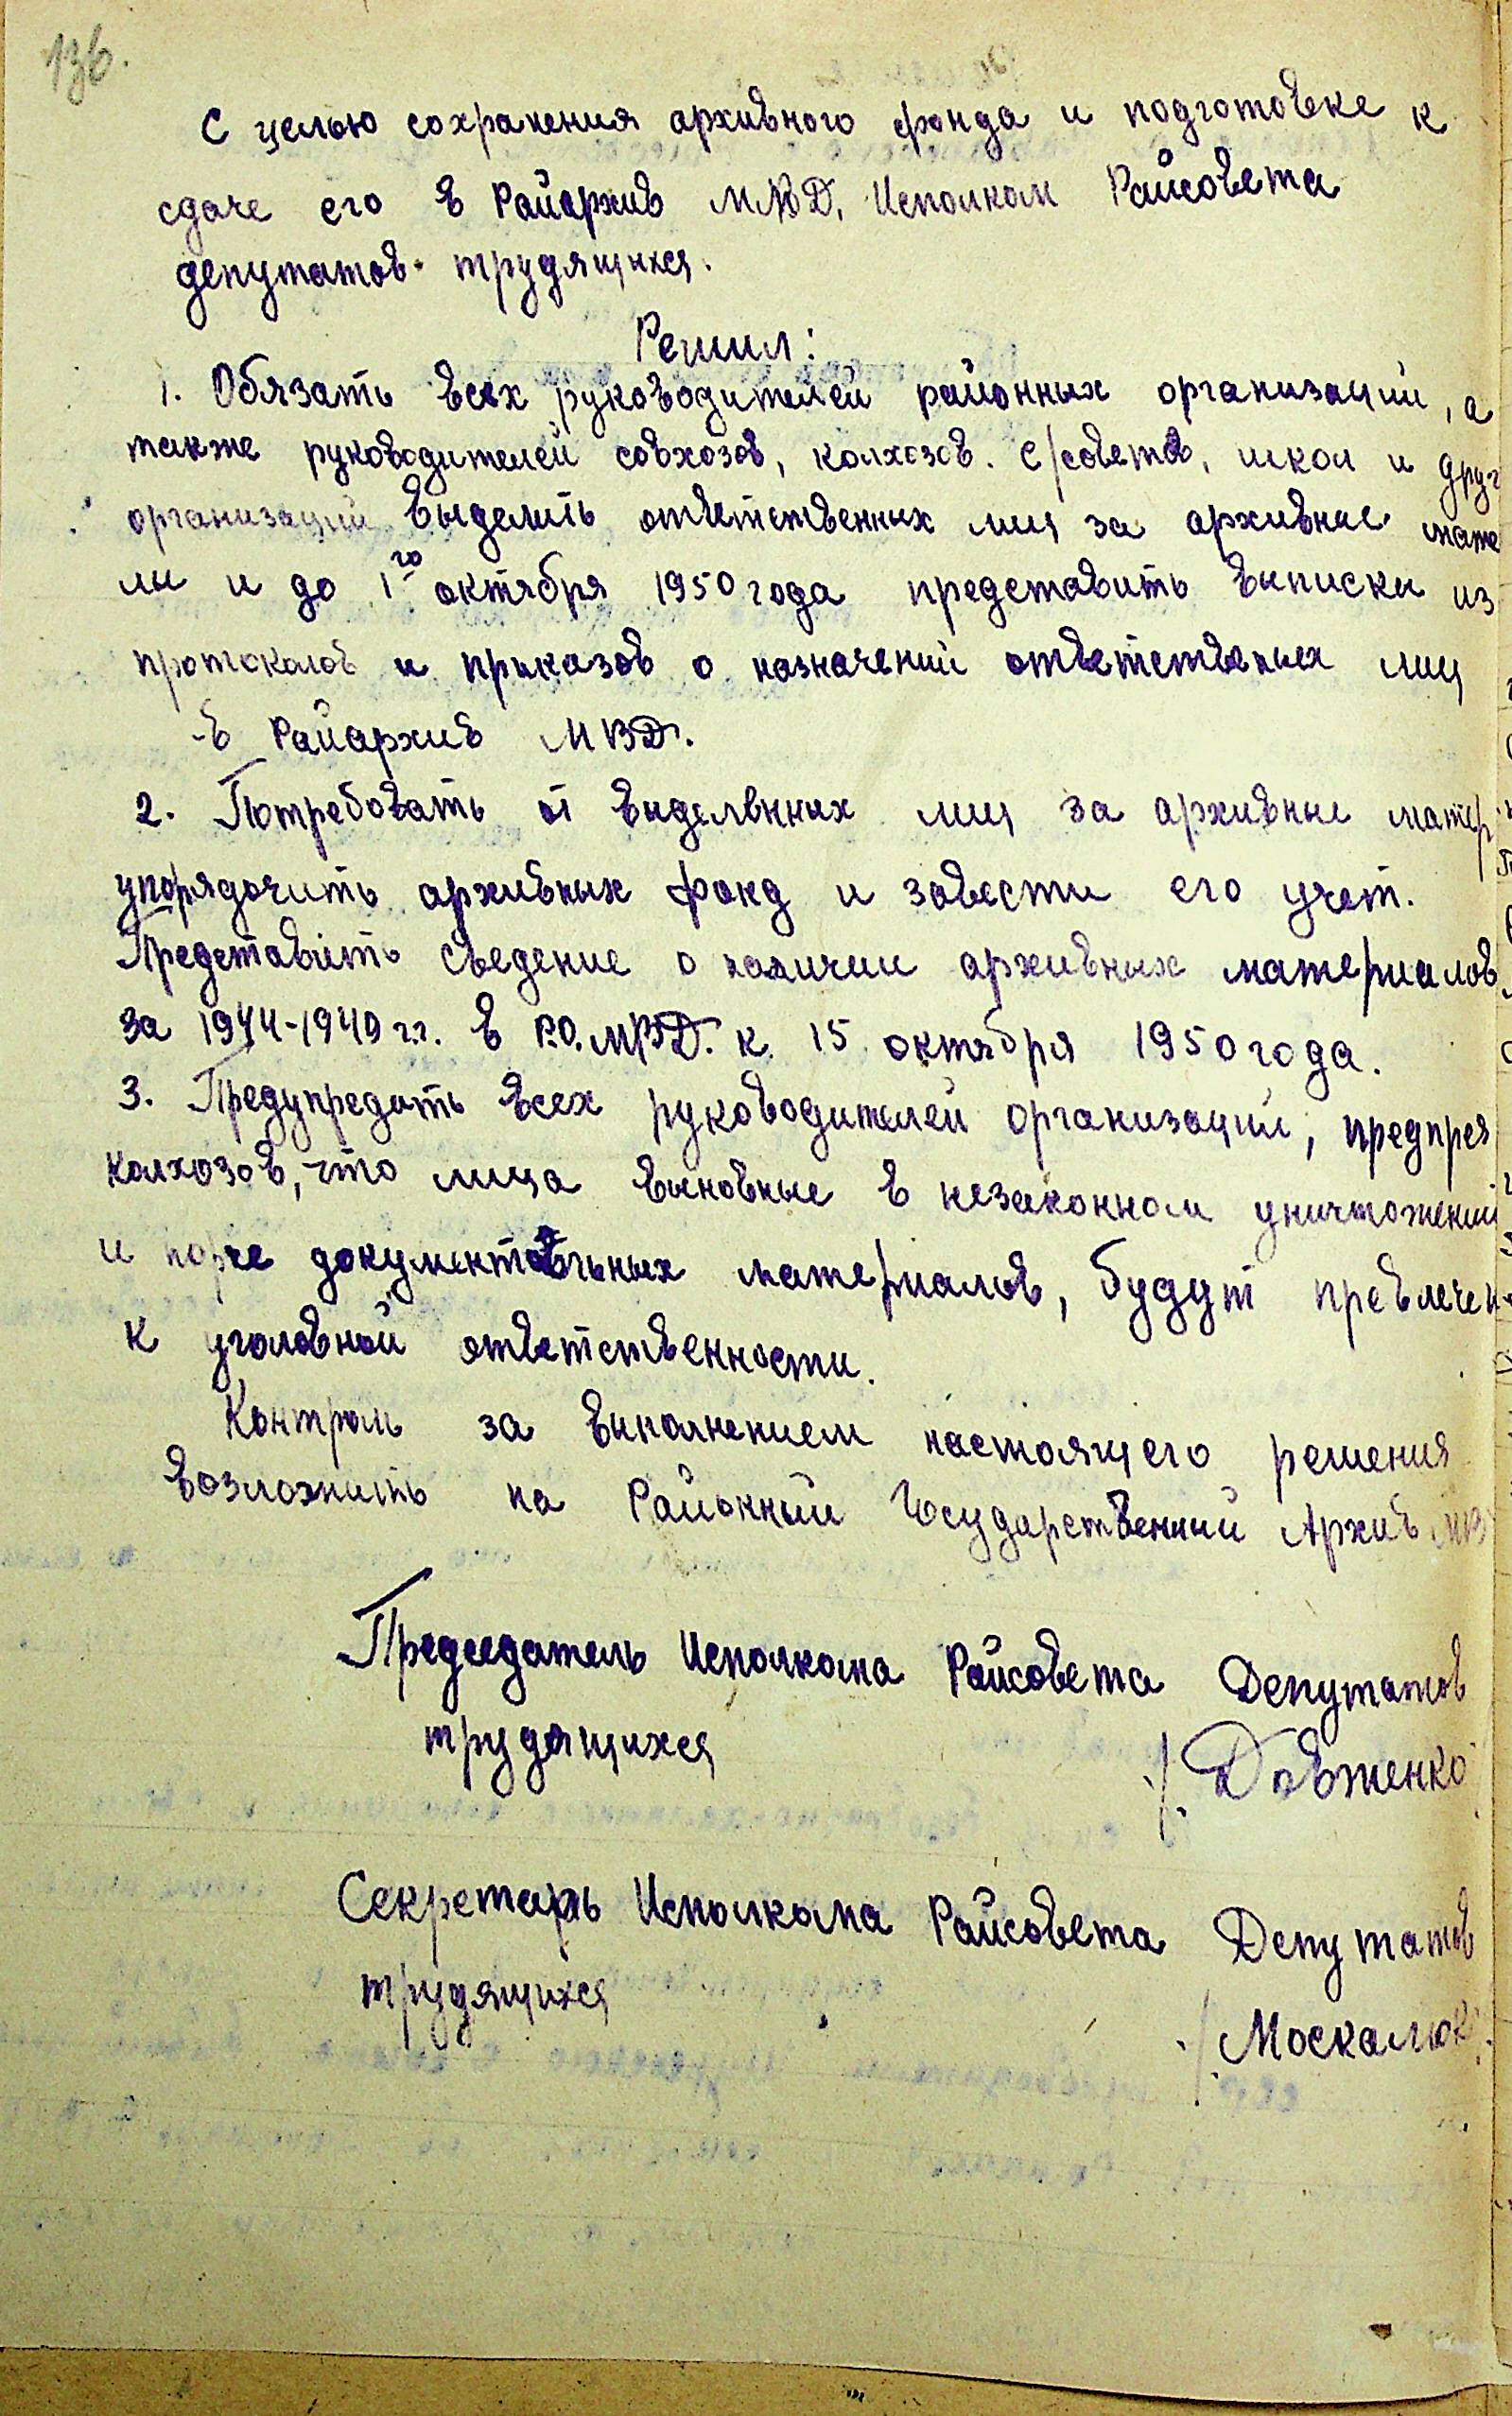 136.
С целью сохранения архивного фонда и подготовке к
сдаче его в Райархив МВД, Исполком Райсовета
депутатов трудящихся.
Решил:
1. Обязать всех руководителей районных организаций, а
также руководителей совхозов, колхозов. с/советов, школ и друг
организаций выделить ответственных лиц за архивные мате
лы и до 1го октября 1950 года представить выписки из
протоколов и приказов о назначений ответственных лиц
в Райархив МВД.
2. Потребовать от выделенных лиц за архивные матер
упорядочить архивных фонд и завести его учет.
Представить сведение о наличии архивных материалов
за 1944-1949 г.г. в Р.О. МВД. к 15 октября 1950 года.
3. Предупредить всех руководителей организаций, предпрея
колхозов, что лица выновные в незаконном уничтожений
и порче документальных материалов, будут превлечен
к уголовной ответственности.
Контроль за выполнением настоящего решения
возложить на Районный Государственный Архив МВ
Председатель Исполкома Райсовета Депутатов
трудящихся
/. Довженко
Секретарь Исполкома Райсовета Депутатов
трудящихся
/ Москалюк.